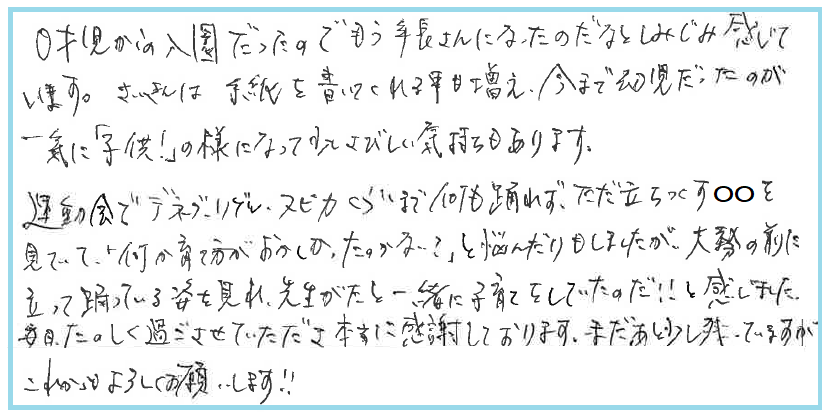 0才児からの入園だったのでもう年長さんになったのだなとしみじみ感じて
います。さいきんは 手紙を書いてくれる事も増え、今まで幼児だったのが
一気に「子供!」の様になって少しさびしい気持ちもあります。
運動会でデネブ、リゲル、スピカぐらいまで何も踊れず、ただ立ちつくす〇〇を
見ていて、「何か育て方がおかしかったのかな…?」と悩んだりもしましたが、大勢の前に
立って踊っている姿を見れ、先生がたと一緒に子育てをしていたのだ!!と感じました。
毎日、たのしく過ごさせていただき本当に感謝しております。まだあと少し残っていますが
これからもよろしくお願いします!!